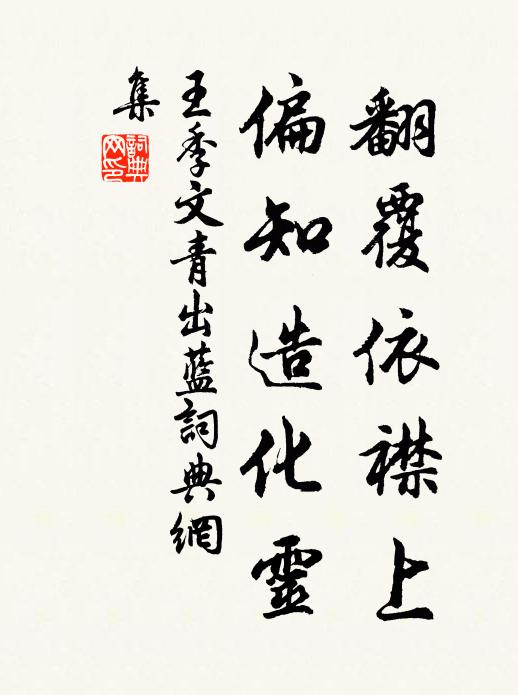 翻覆依襟上
偏知造化靈
王季文青出藍詞典網
集
詞典網印